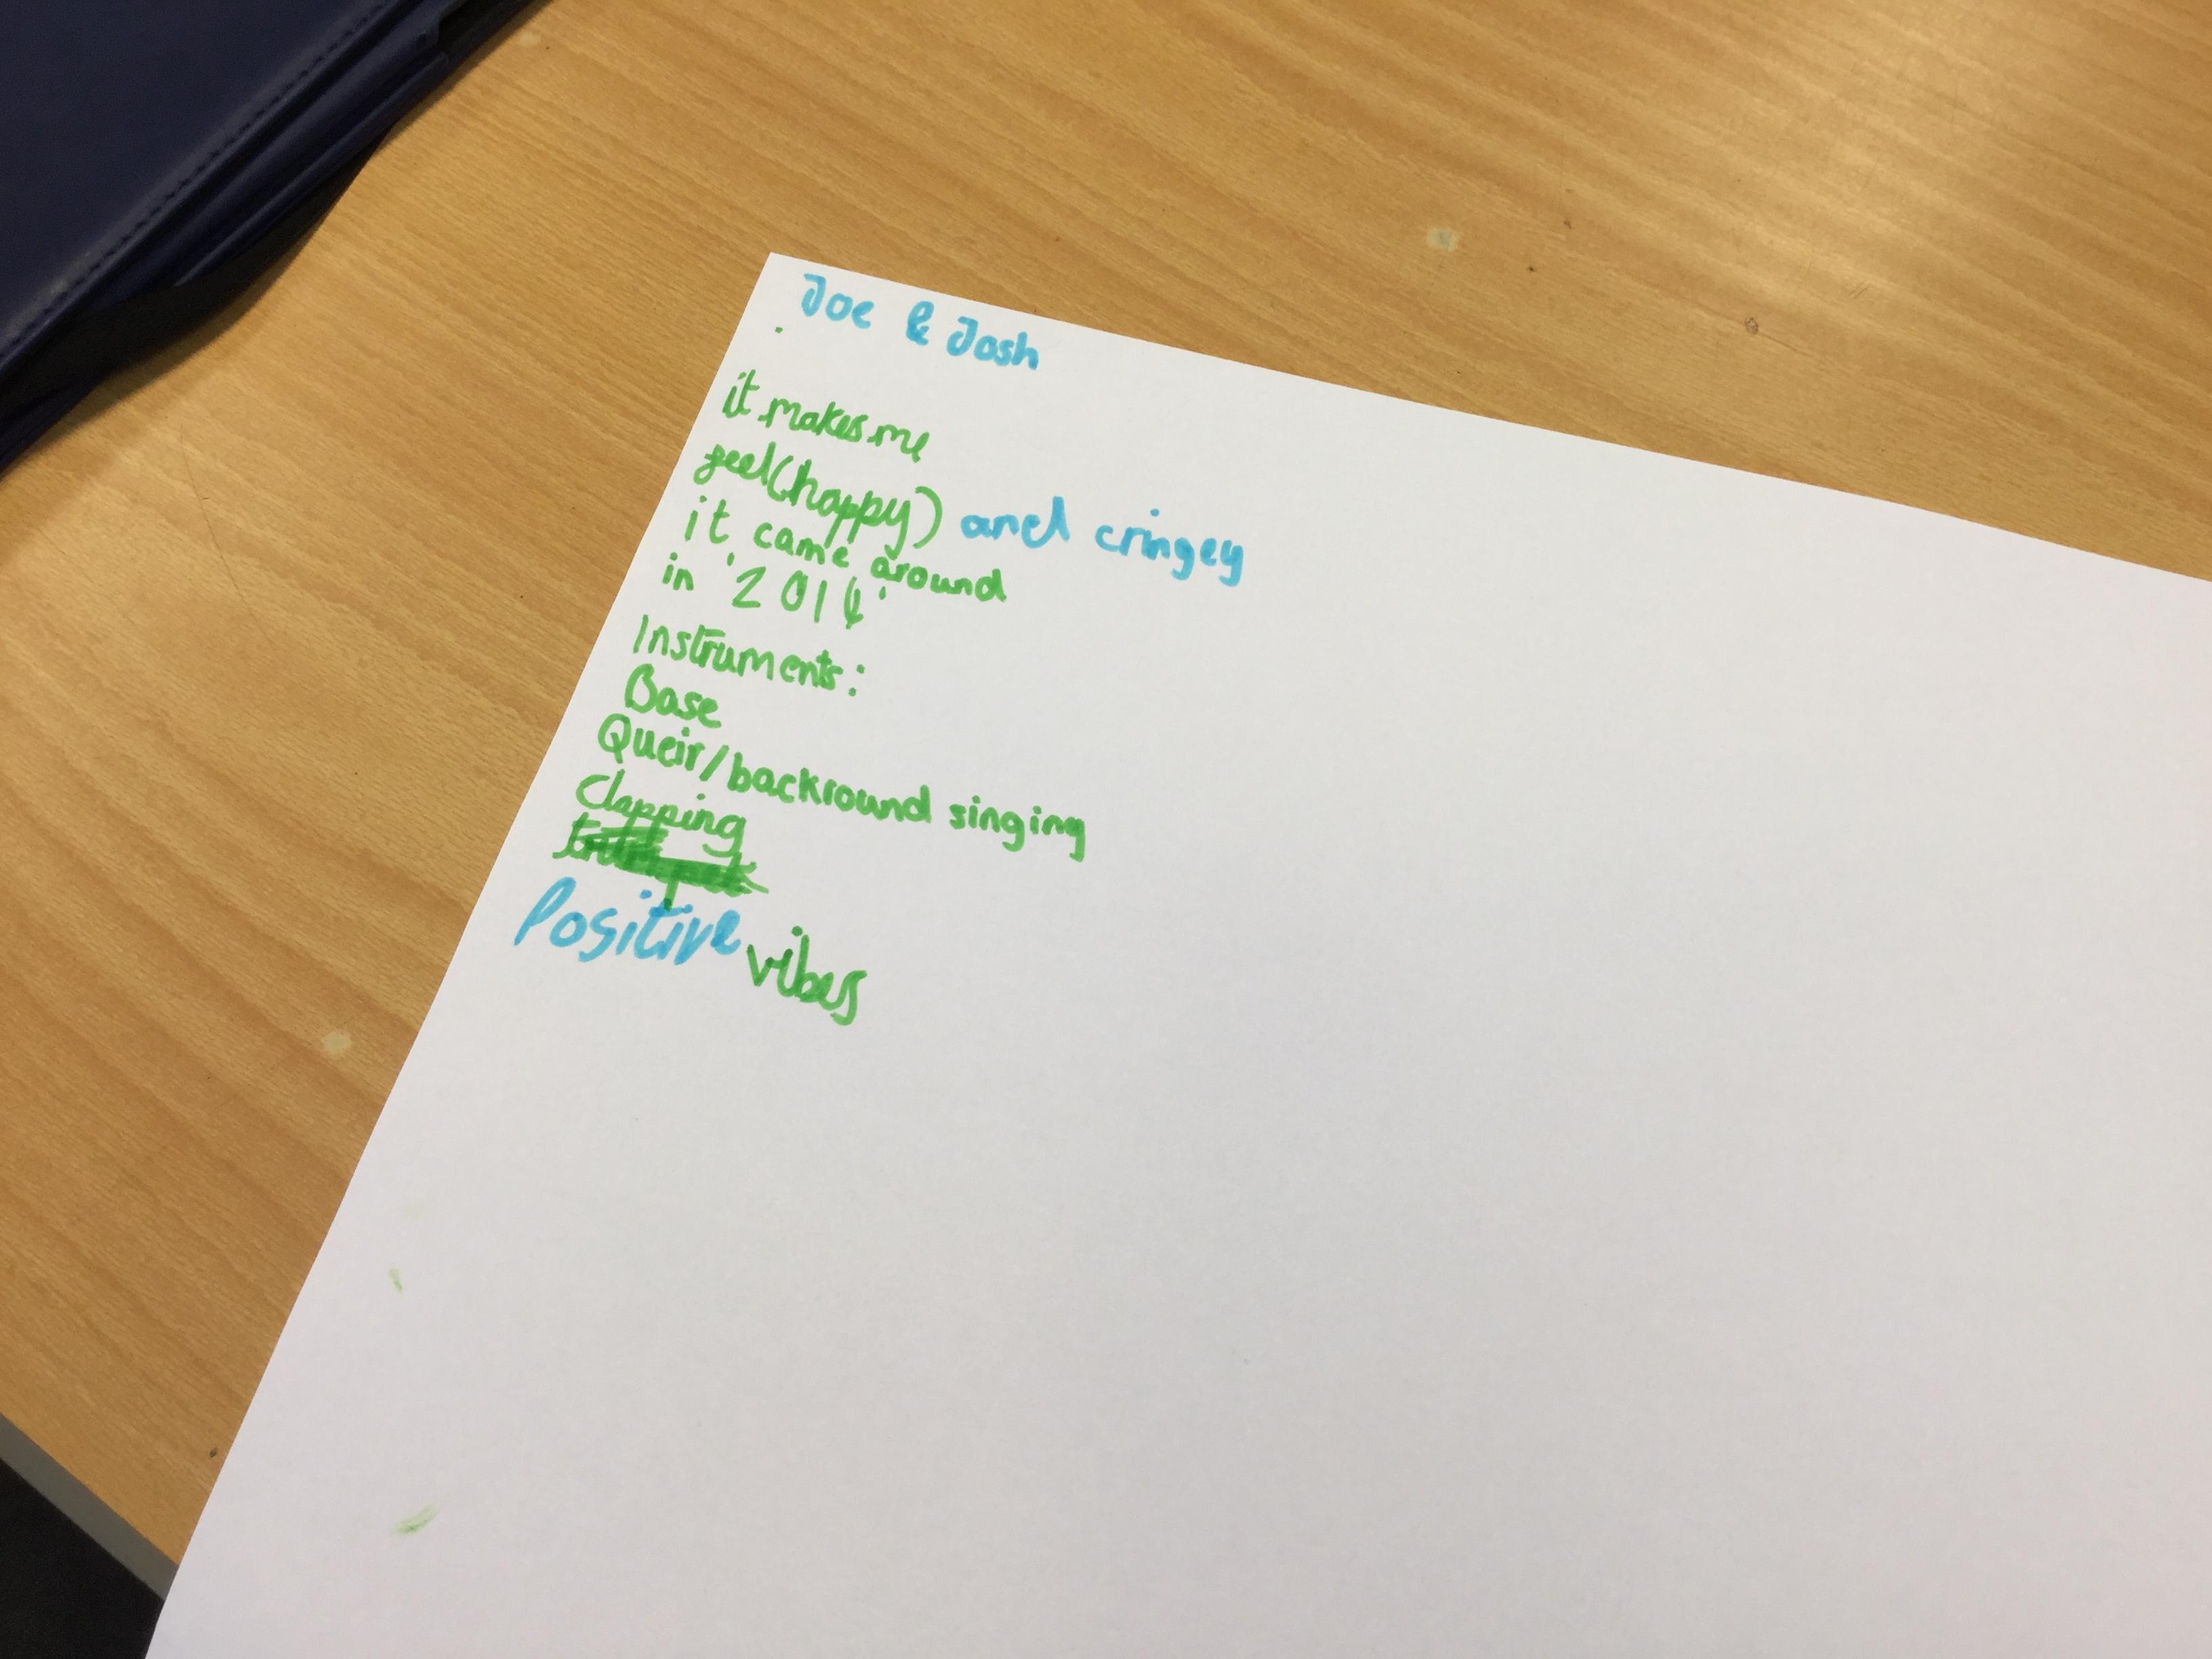 Joe & Josh
it makes me
feel (happy) and cringey
it came around
in '2014'
Instruments:
Base
Queir/backround singing
Clapping
Positive vibes